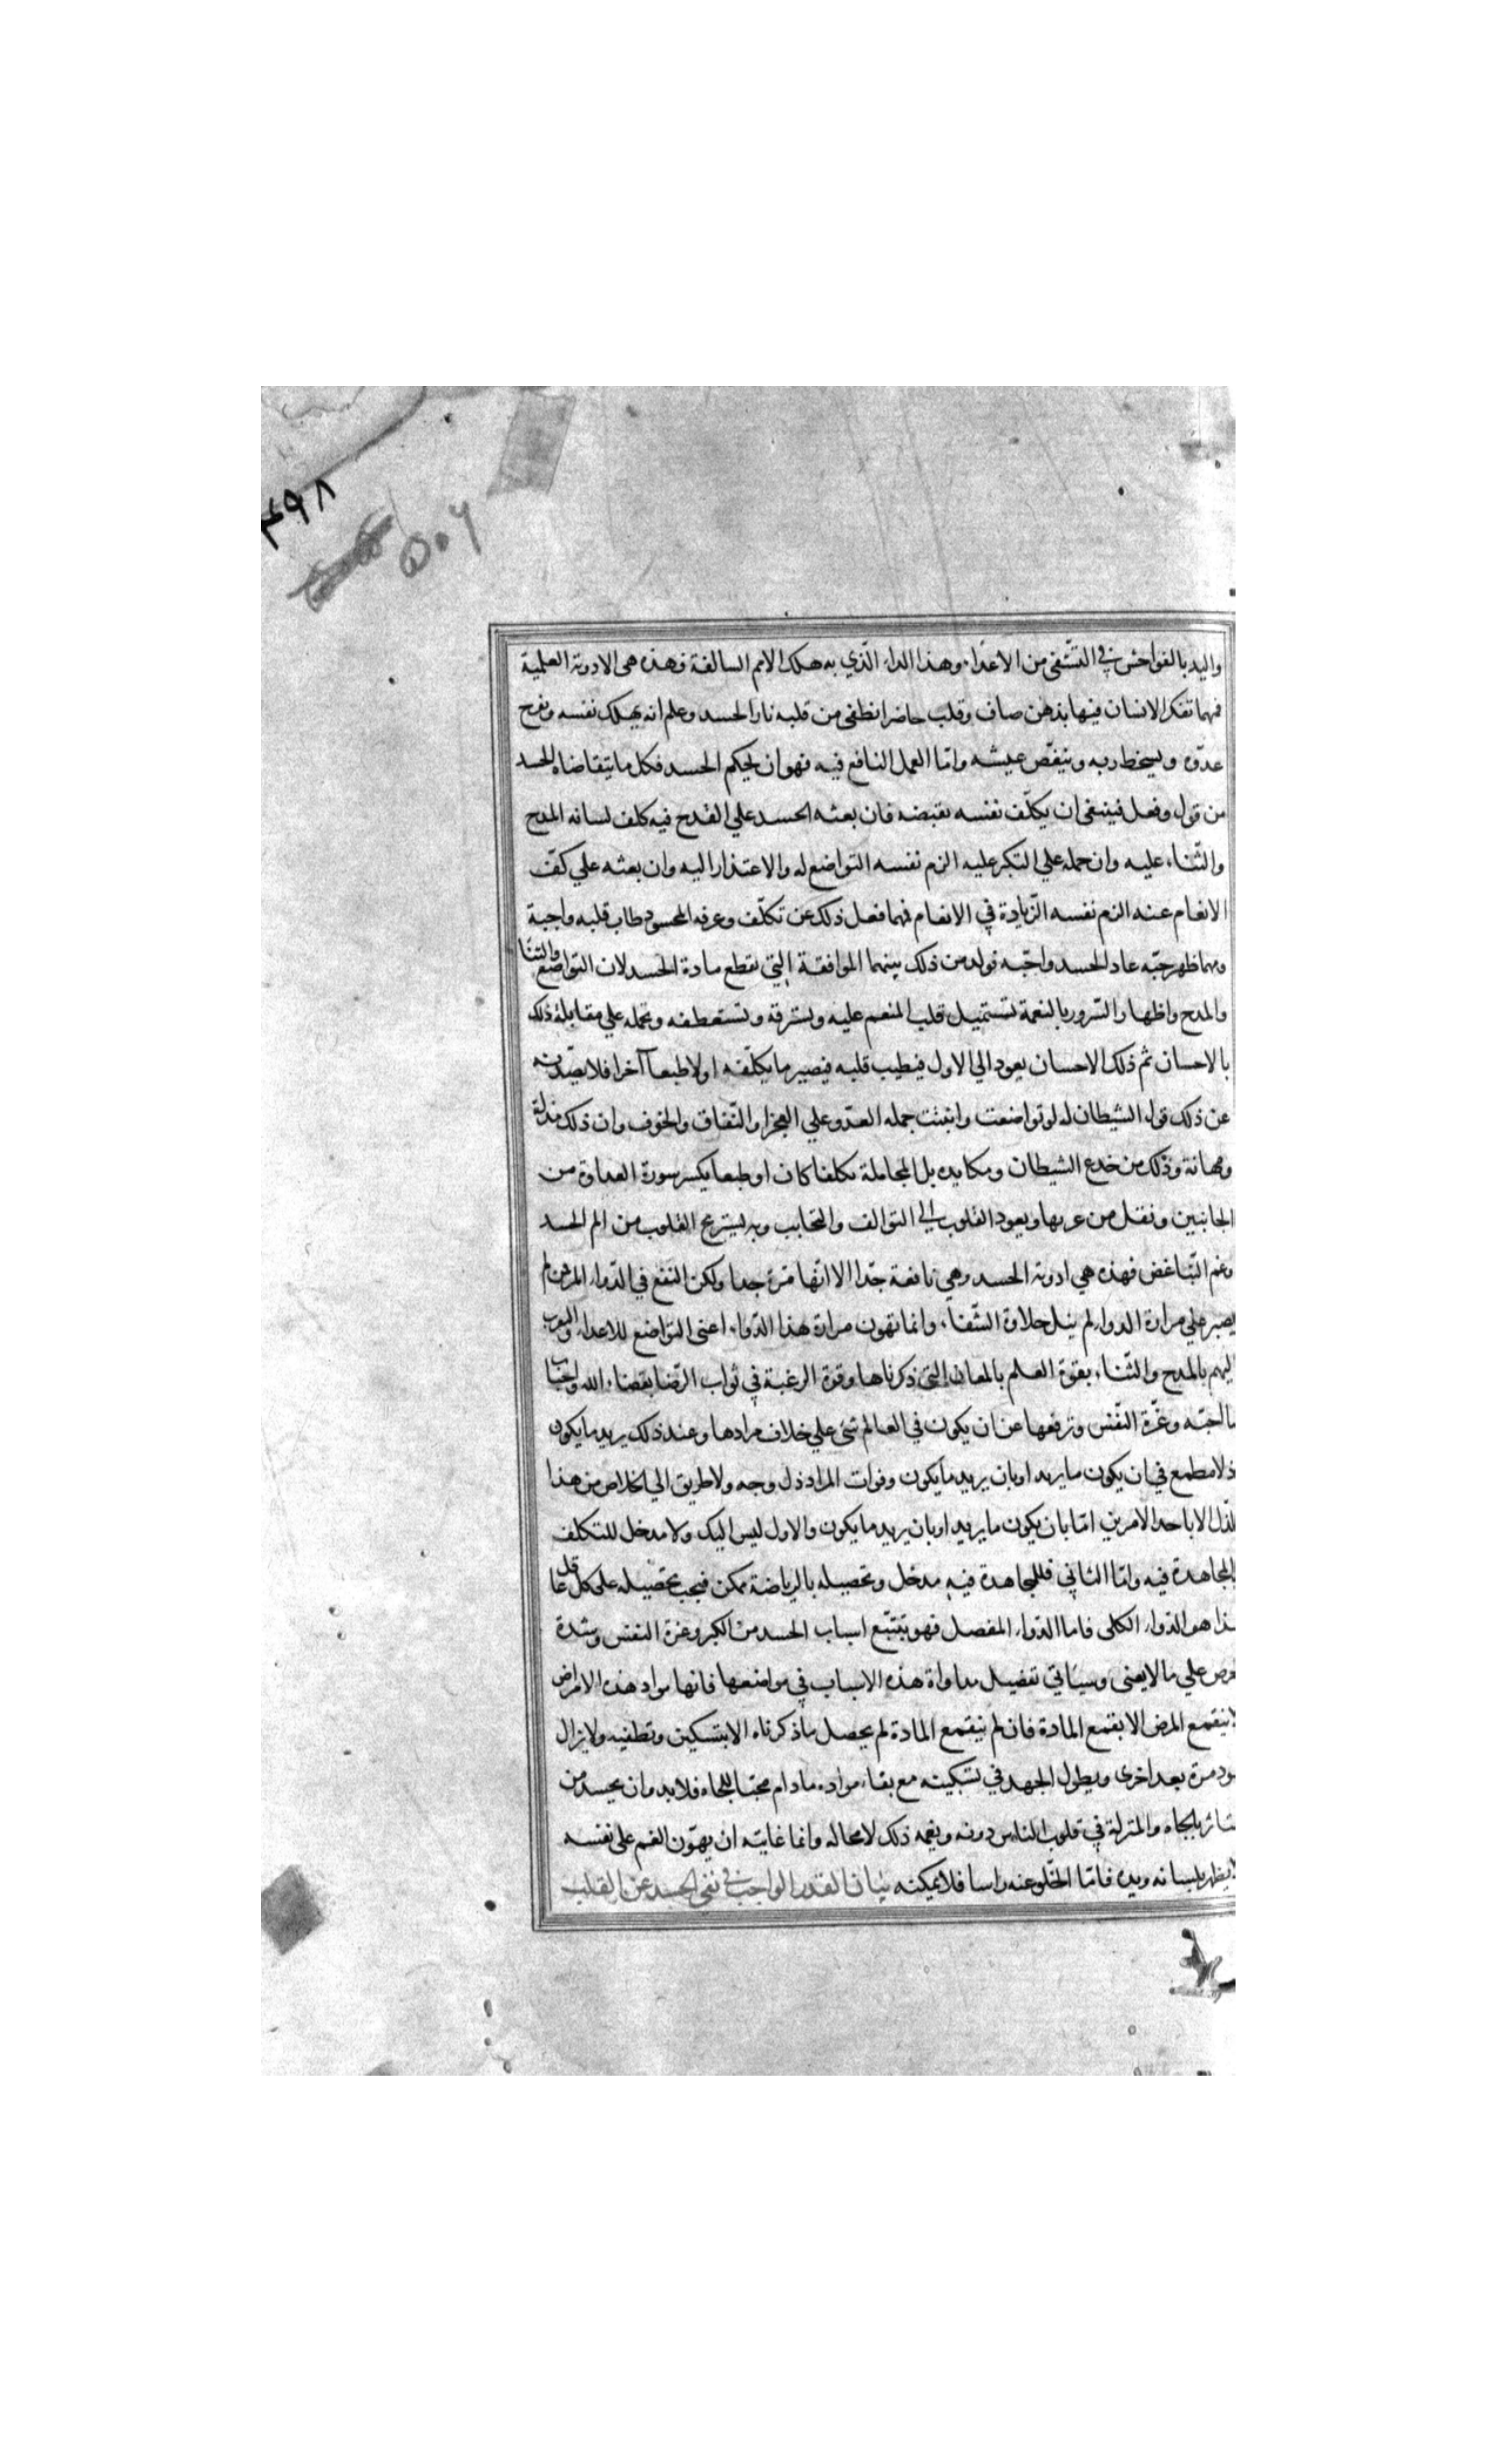 ٤٩٨
٥٠٦
واليد بالفواحش في التشفى من الاعداء وهذا الداء الّذي به هلك الامم السالفة فهذه هى الادوية العلمية
فمهما تفكر الانسان فيها بذهن صاف وقلب حاضر انطفى من قلبه نار الحسد وعلم انه يهلك نفسه ويفرح
عدوّه ويسخط ربه وينغّص عيشه وامّا العمل النافع فيه فهو ان يحكم الحسد فكل ما يتقاضاه الحسد
من قول وفعل فينبغى ان يكلّف نفسه نقيضه فان بعثه الحسد علي القدح فيه كلف لسانه المدح
والثّناء عليه وان حمله علي التكبر عليه الزم نفسه التواضع له والاعتذار اليه وان بعثه علي كفّ
الانعام عنه الزم نفسه الزّيادة في الانعام فمهما فعل ذلك عن تكلّف وعرفه المحسود طاب قلبه واحبه
ومهما ظهر حبّه عاد الحسد واحبّه تولد من ذلك بينهما الموافقة التي تقطع مادة الحسد لان التواضع والثنا
والمدح واظهار السّرور بالنعمة تستميل قلب المنعم عليه وتسترقه وتستعطفه وتحمله علي مقابلة ذلك
بالاحسان ثم ذلك الاحسان يعود الي الاول فيطيب قلبه فيصير ما يكلّفه اولا طبعا آخرا فلا يصّدنه
عن ذلك قول الشيطان له لو تواضعت واثنيت حمله العدو علي العجز او النّفاق والخوف وان ذلك مذلة
ومهانة وذلك من خدع الشيطان ومكايده بل المجاملة تكلفا كان او طبعا يكسر سورة العداوة من
الجانبين ونقل من عربها ويعود القلوب الي التوالف والتحابب وبه ليستريح القلوب من الم الحسد
وغم التباغض فهذه هي ادوية الحسد وهي نافعة جدّا الا انّها مرّة جدا ولكن النفع في الدّواء المر فمن لم
يصبر علي مرارة الدواء لم ينل حلاوة الشّفاء وانما تهون مرارة هذا الدّواء اعنى التواضع للاعداء والتقرب
اليهم بالمدح والثّناء بقوة العلم بالمعاني التي ذكرناها وقوة الرغبة في ثواب الرّضا بقضاء الله ولحباب
ما احبّه وعزّة النّفس وترفعها عن ان يكون في العالم شئ علي خلاف مرادها وعند ذلك يريد ما يكون
ذ لا مطمع في ان يكون ما يريد او بان يريد ما يكون وفوات المراد ذل وجه ولا طريق الي الخلاص من هذا
لذل الا باحد الامرين امّا بان يكون ما يريد او بان يريد ما يكون والاول ليس اليك ولا مدخل للتكلف
المجاهدة فيه وامّا الثاني فللمجاهدة فيه مدخل وتحصيله بالرياضة ممكن فيجب تحصيله على كل عاقل
هذا هو الدّواء الكلى فاما الدّواء المفصل فهو تتبّع اسباب الحسد من الكبر وعزة النفس وشدة
لحرص علي ما لا يعنى وسيأتي تفصيل مداواة هذه الاسباب في مواضعها فانها مواد هذه الامراض
لا ينقمع المرض الا بقمع المادة فان لم ينقمع المادة لم يحصل ماذكرناه الا بتسكين وتطفيه ولا يزال
يعود مرة بعد اخرى ويطول الجهد في تسكينه مع بقاء مواده ما دام محبّا للجاه فلابد وان يحسد من
ستاثر بالجاه والمنزلة في قلوب الناس دونه ويغمه ذلك لا محاله وانما غايته ان يهوّن الغم على نفسه
لا يظهر بلسانه ويده فامّا الخّلو عنه راسا فلا يمكنه بيان القدر الواجب في نفى الحسد عن القلب